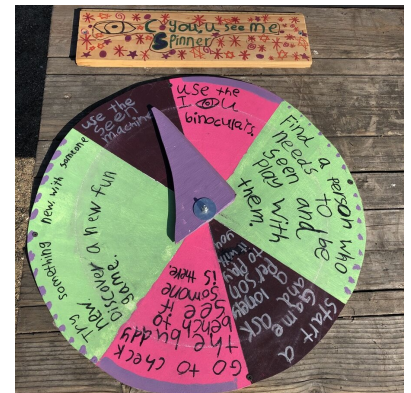 C you, u see me
Spinner
use the
I U
binoculars
Find a person who
needs to be
seen and
play with
them
Start a
Game and
ask
loney
person
to play
it with
you
Go to check
the buddy
bench to
see if
somone
is there
Try something new with someone
new
Discover a new fun
game
use the
seen
machine